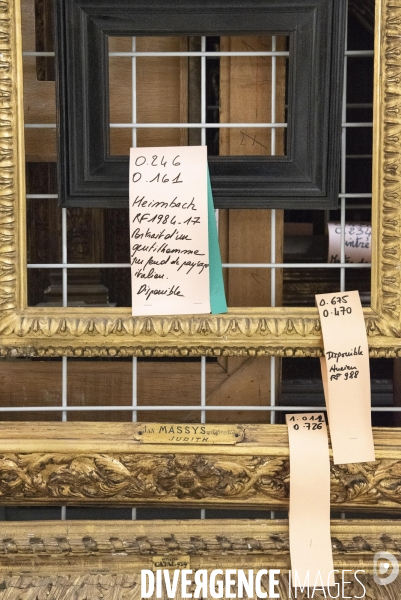 0.246
0.161
Heimbach
RF 1984-17
Portrait d'un
gentilhomme
sur fond de paysage
italien.
Disponible
0.675
0.470
Disponible
Ancien
RF 988
1.011
0.726
MASSYS
JUDITH
DIVERGENCE IMAGES